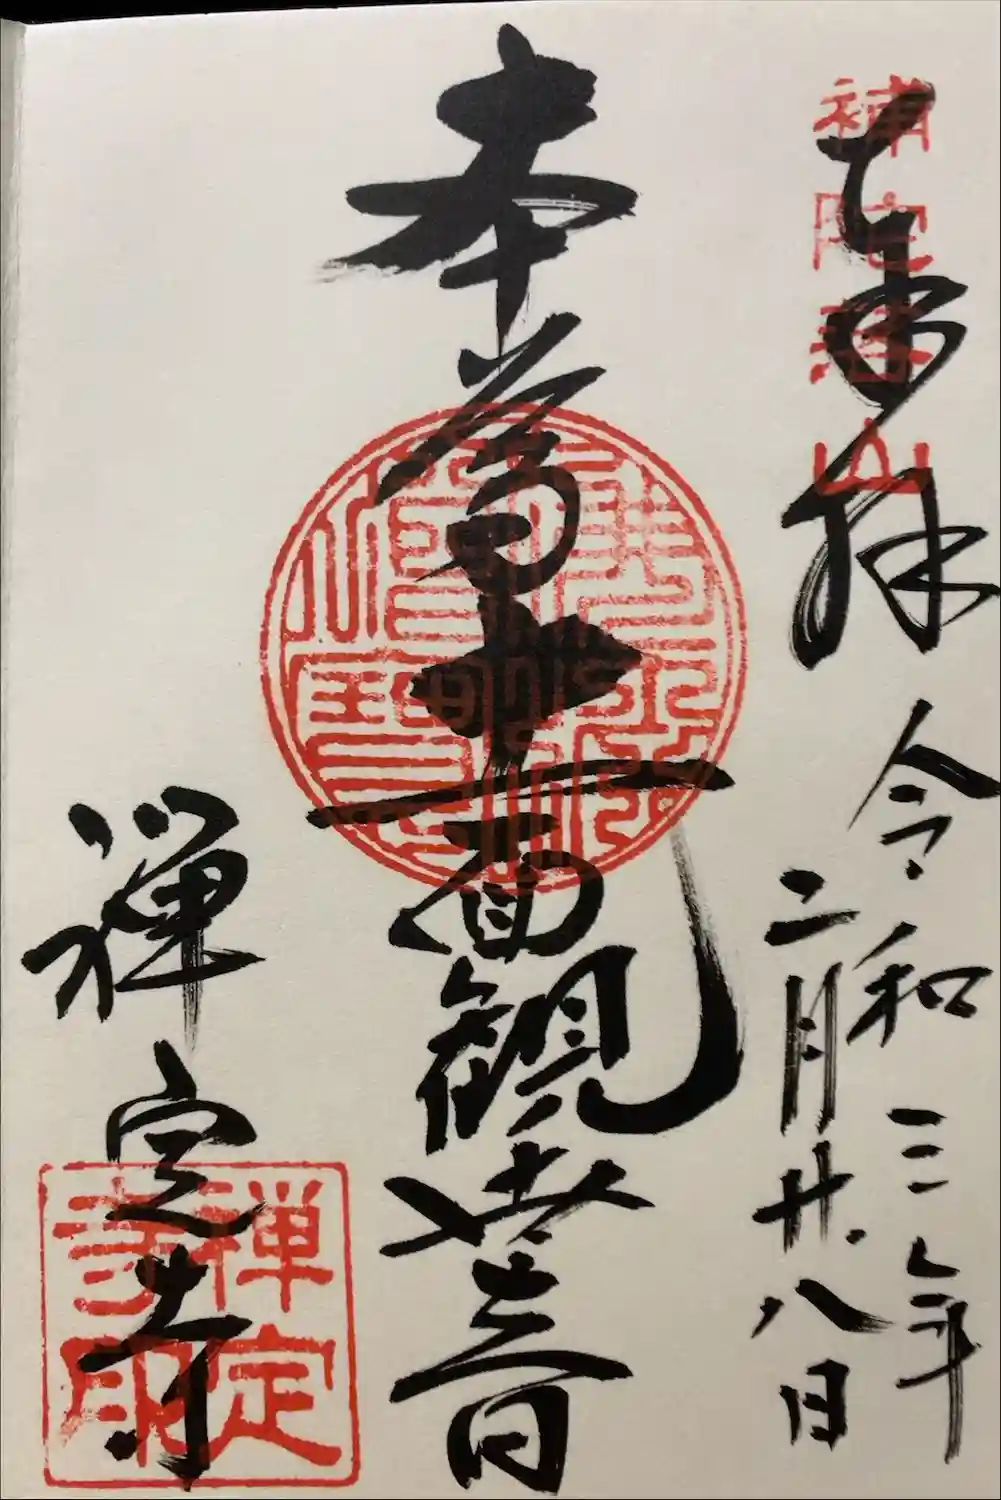 奉拝
補陀落山
令和三年
二月廿八日
本尊十一面観世音
禅定寺
禅定寺印